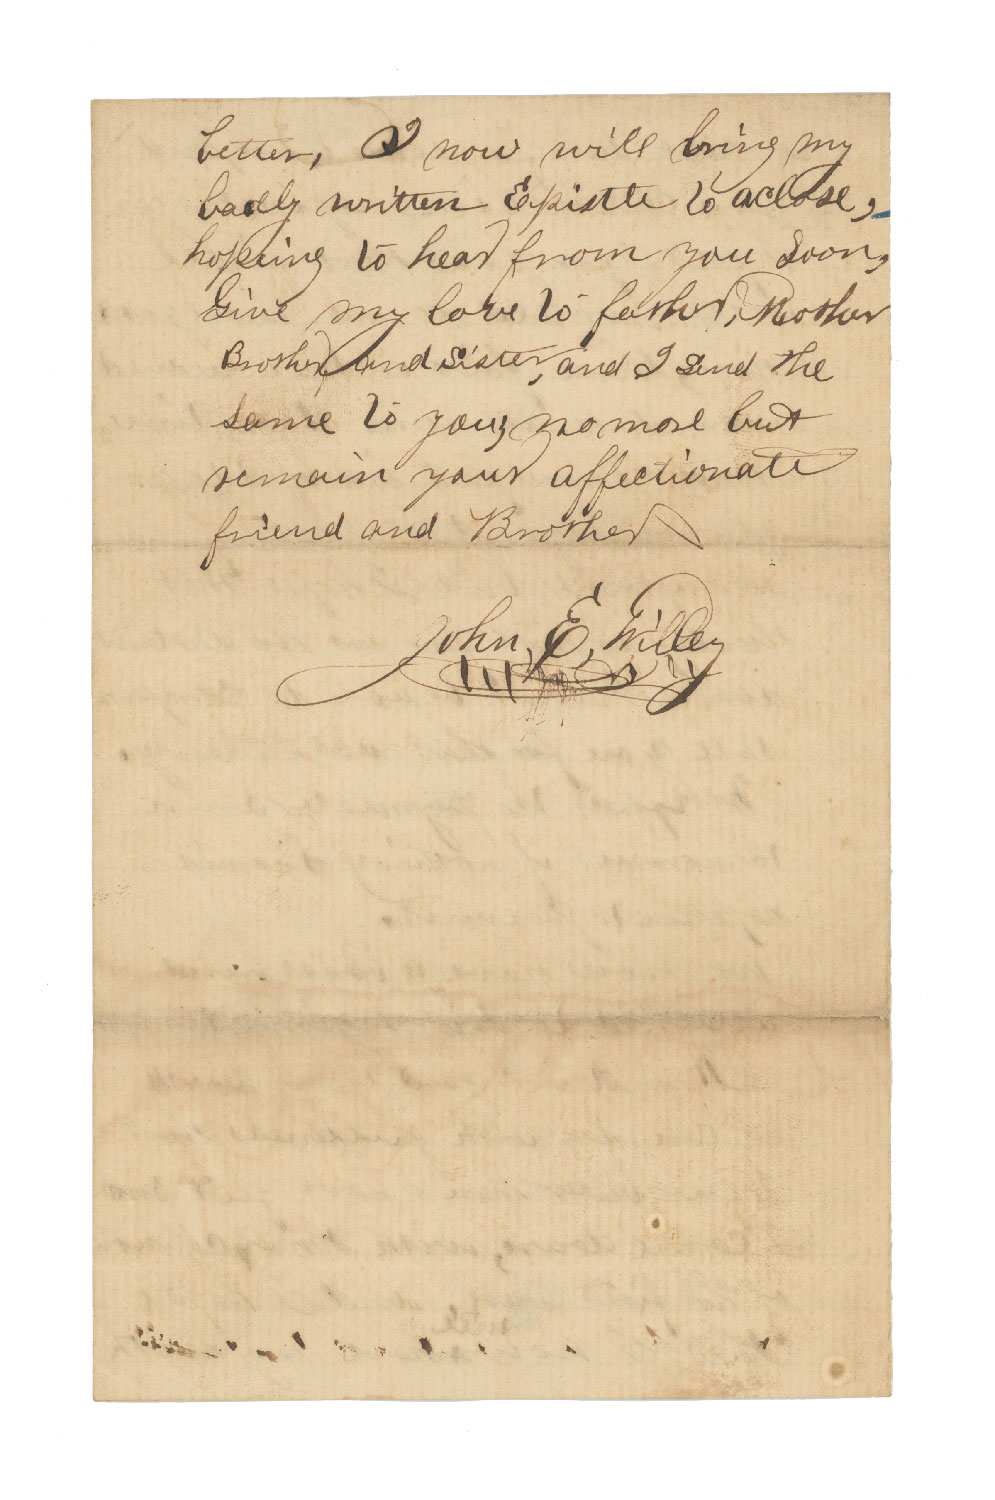 better, I now will bring my
badly written Epistle to aclose,
hopeing to hear from you soon,
Give my love to father, Mother
Brother and Sister, and I send the
same to you, no more but
remain your affectionate
friend and Brother
John, E, Willey